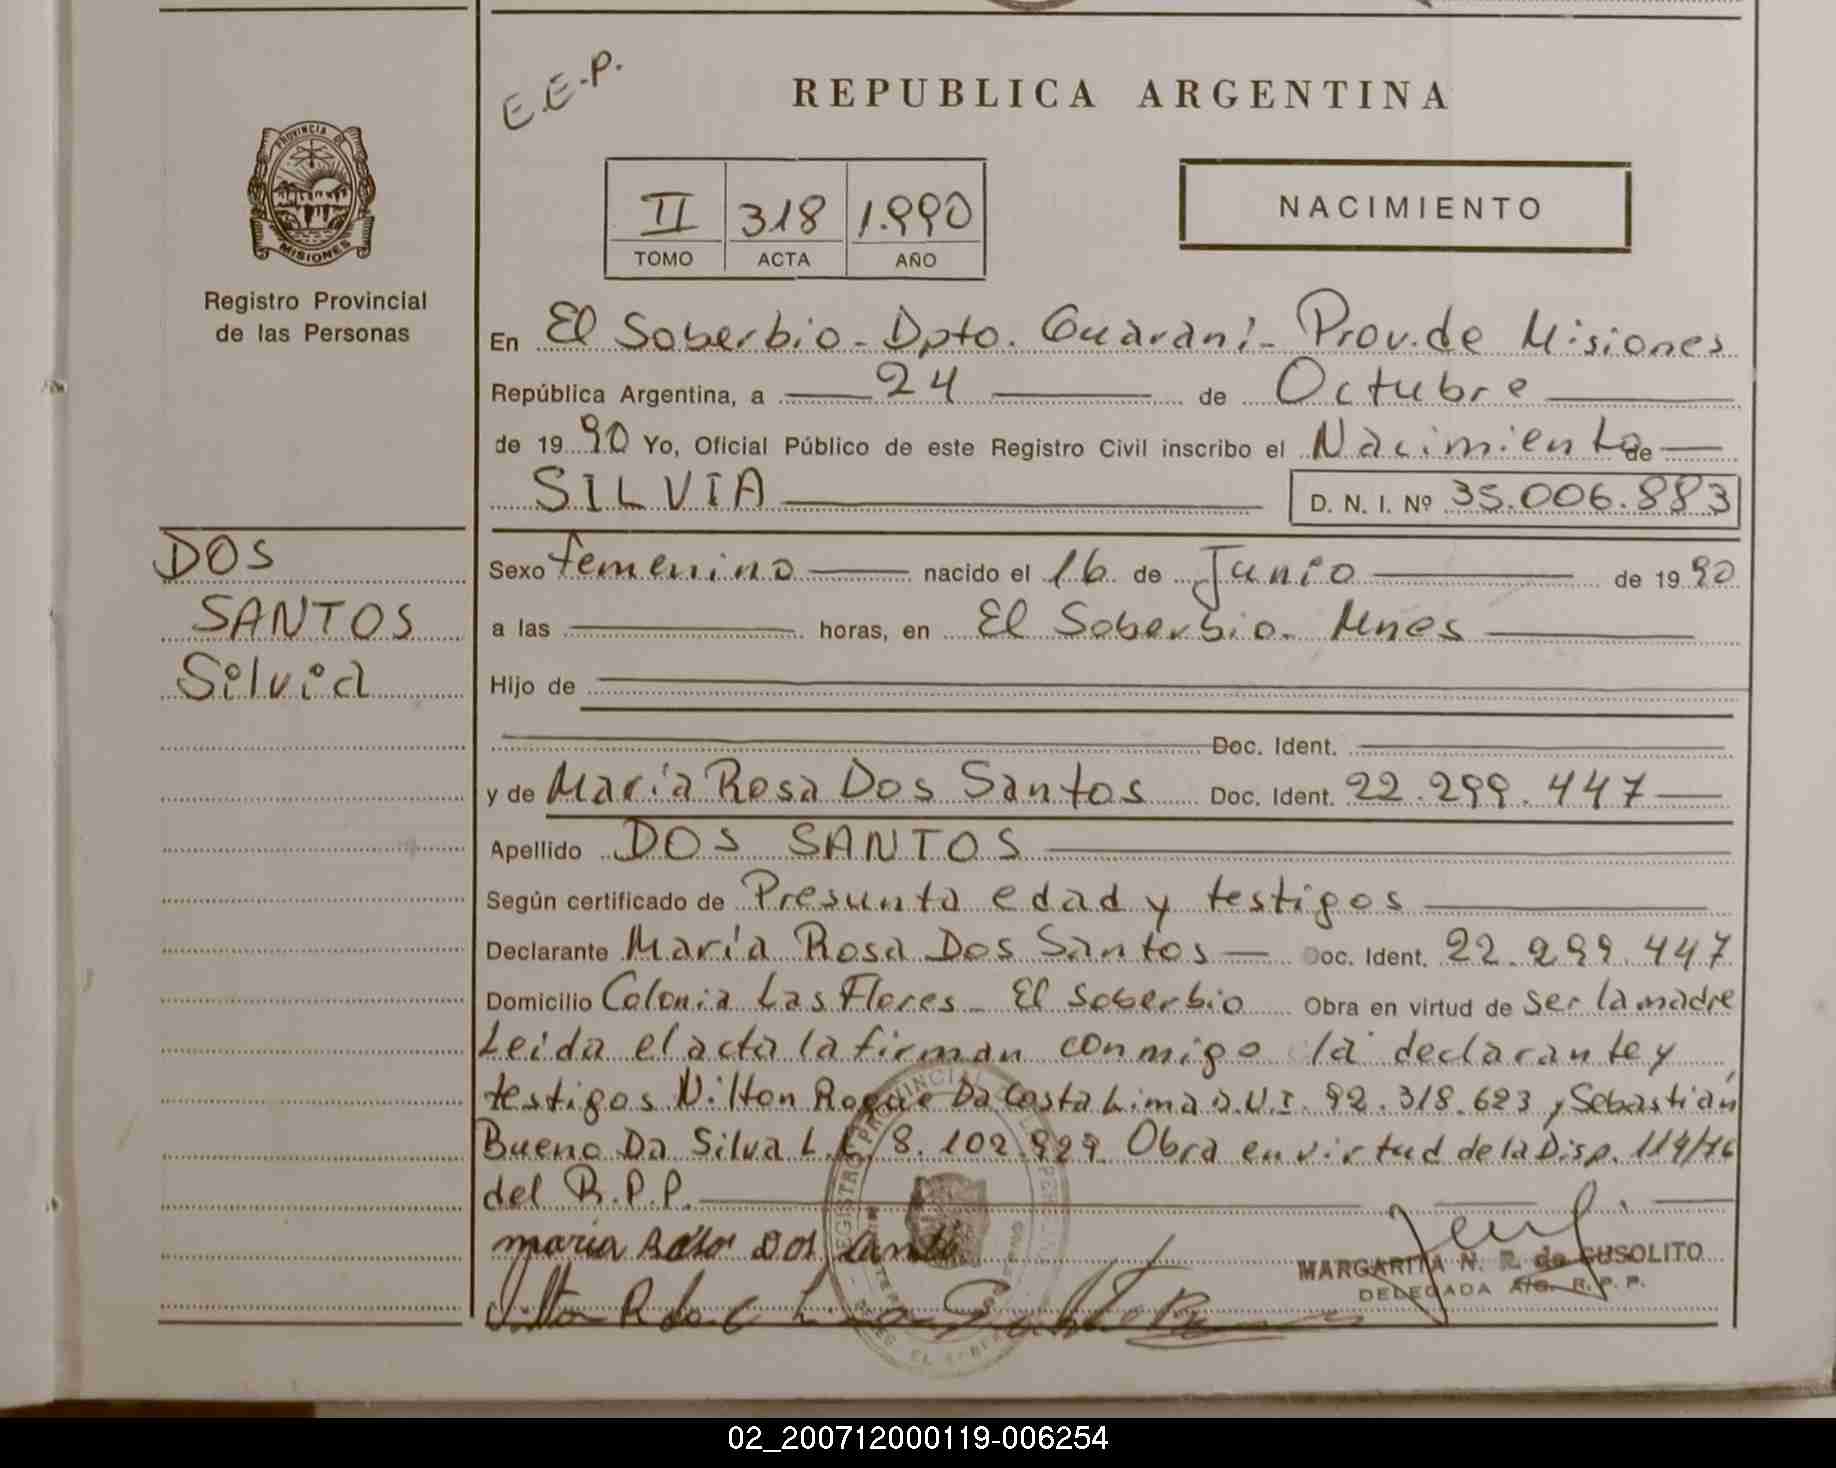 E.E.P.
REPUBLICA ARGENTINA
PROVINCIA DE
MISIONES
Registro Provincial
de las Personas
II 318 1.990
TOMO ACTA AÑO
NACIMIENTO
En El Soberbio - Dpto. Guaraní - Prov. de Misiones
República Argentina, a 24 de Octubre
de 1990 Yo, Oficial Público de este Registro Civil inscribo el Nacimiento de
SILVIA D. N. I. Nº 35.006.883
DOS
SANTOS
Silvia
Sexo femenino nacido el 16 de Junio de 1990
a las horas, en El Soberbio. Mnes
Hijo de
Doc. Ident.
y de María Rosa Dos Santos Doc. Ident. 22.299.447
Apellido DOS SANTOS
Según certificado de Presunta edad y testigos
Declarante María Rosa Dos Santos Doc. Ident. 22.299.447
Domicilio Colonia Las Flores - El Soberbio Obra en virtud de ser la madre
Leida el acta la firman conmigo la declarante y
testigos Nilton Roque Da Costa Lima D.N.I. 92.318.623, Sebastián
Bueno Da Silva L.E. 8.102.929. Obra en virtud de la Disp. 114/76
del R.P.P.
maria Rosa Dos Santo
MARGARITA N. R. de SUSOLITO
DELEGADA R. P. P.
02_200712000119-006254